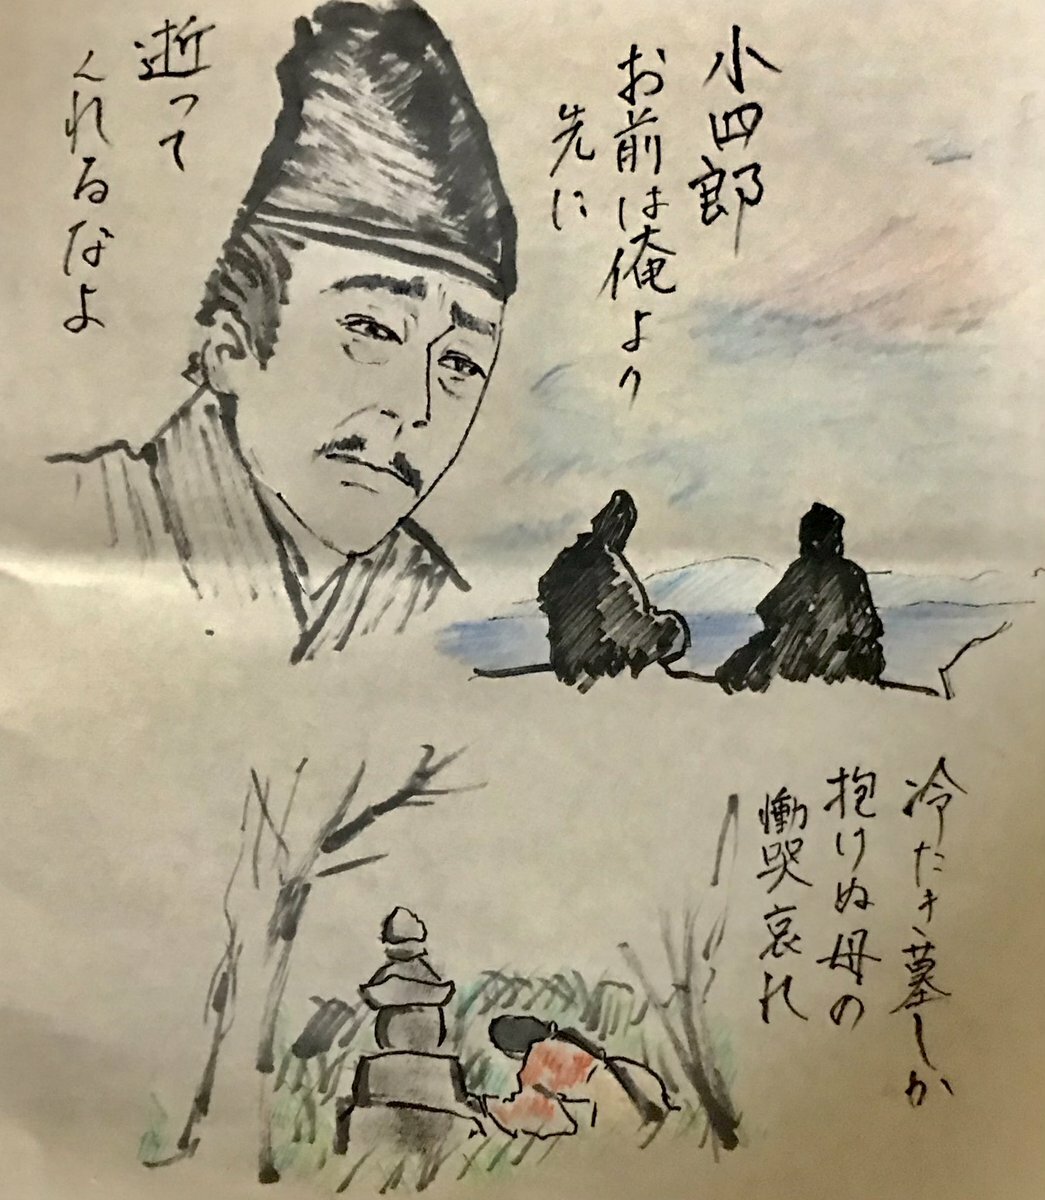 小四郎
お前は俺より
先に
逝って
くれるなよ
冷たき墓しか
抱けぬ母の
慟哭哀れ